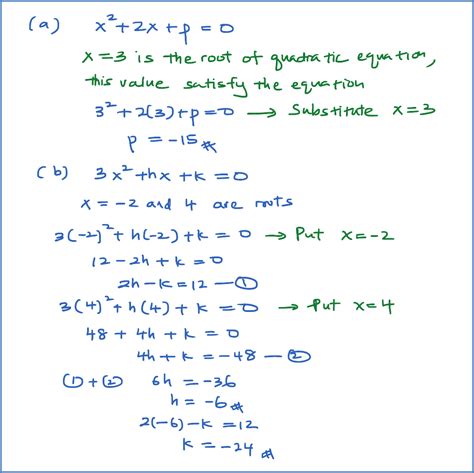 (a) x²+2x+p = 0
x=3 is the root of quadratic equation,
this value satisfy the equation
3²+2(3)+p=0 → Substitute x=3
p = -15 #
(b) 3x²+hx+k=0
x = -2 and 4 are roots
3(-2)²+h(-2)+k = 0 → Put x=-2
12-2h+k=0
2h-k=12 — ①
3(4)²+h(4)+k=0 → Put x=4
48+4h+k=0
4h+k=-48 — ②
①+② 6h=-36
h=-6 #
2(-6)-k=12
k=-24 #